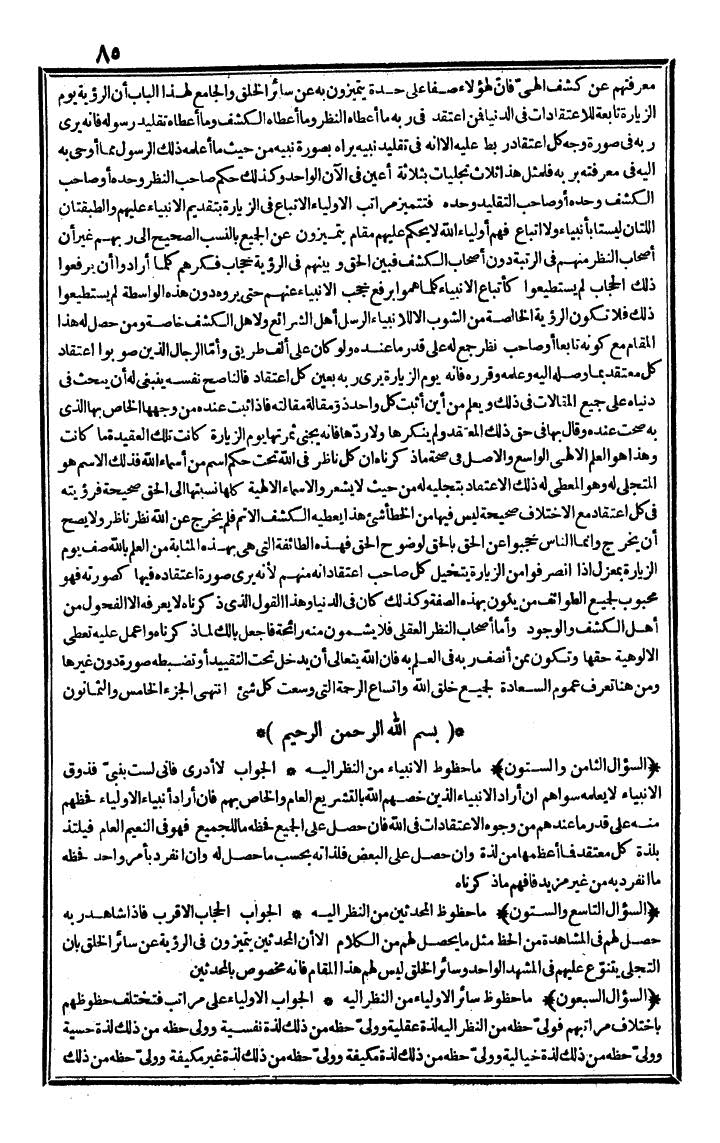 ٨٥
معرفتهم عن كشف الهىّ فانّ لهؤلاء صفاعلى حدة يتميزون به عن سائر الخلق والجامع لهذا الباب أن الرؤية يوم
الزيارة تابعة للاعتقادات فى الدنيا فن اعتقد فى ربه ما أعطاه النظر وما أعطاه الكشف وما أعطاه تقليد رسوله فانه يرى
ربه فى صورة وجه كل اعتقاد ربط عليه الاانه فى تقليد نبيه يراه بصورة نبيه من حيث ما أعلمه ذلك الرسول مما أوحى به
اليه فى معرفته بربه فلمثل هذا ثلاث تجليات بثلاثة أعين فى الآن الواحد وكذلك حكم صاحب النظر وحده أو صاحب
الكشف وحده أو صاحب التقليد وحده فتتميز مراتب الاولياء الاتباع فى الزيارة بتقديم الانبياء عليهم والطبقتان
اللتان ليستا بأنبياء ولا اتباع فهم أولياء الله لا يحكم عليهم مقام يتميزون عن الجميع بالنسب الصحيح الى ربهم غير أن
أصحاب النظر منهم فى الرتبة دون أصحاب الكشف فبين الحق وبينهم فى الرؤية حجاب فكرهم كلما أرادوا أن يرفعوا
ذلك الحجاب لم يستطيعوا كأتباع الانبياء كلما هموا برفع حجب الانبياء عنهم حتى يروه دون هذه الواسطة لم يستطيعوا
ذلك فلا تكون الرؤية الخالصة من الشوب الا للانبياء الرسل أهل الشرائع ولاهل الكشف خاصة ومن حصل له هذا
المقام مع كونه تابعا أو صاحب نظر جمع له على قدر ما عنده ولو كان على ألف طريق وأمّا الرجال الذين صوبوا اعتقاد
كل معتقد بما وصله اليه وعلمه وقرره فانه يوم الزيارة يرى ربه بعين كل اعتقاد فالناصح نفسه ينبغى له أن يبحث فى
دنياه على جميع المقالات فى ذلك ويعلم من أين أثبت كل واحد ذو مقالة مقالته فاذا ثبت عنده من وجهها الخاص بها الذى
به صحت عنده وقال بها فى حق ذلك المعتقد ولم ينكرها ولا ردّها فانه يجنى ثمرتها يوم الزيارة كانت تلك العقيدة ما كانت
وهذا هو العلم الالهى الواسع والاصل فى صحة ماذكرناه ان كل ناظر فى الله تحت حكم اسم من أسماء الله فذلك الاسم هو
المتجلى له وهو المعطى له ذلك الاعتماد بتجليه له من حيث لا يشعر والاسماء الالهية كلها نسبتها الى الحق صحيحة فرؤيته
فى كل اعتقاد مع الاختلاف صحيحة ليس فيها من الخطأ شئ هذا يعطيه الكشف الاتم فلم يخرج عن الله نظر ناظر ولا يصح
أن يخرج وانما الناس حجبوا عن الحق بالحق لوضوح الحق فهذه الطائفة التى هى بهذه المثابة من العلم بالله صف يوم
الزيارة بمعزل اذا انصرفوا من الزيارة يتخيل كل صاحب اعتقاد انه منهم لأنه يرى صورة اعتقاده فيها كصورته فهو
محبوب لجميع الطوائف من يكون بهذه الصفة وكذلك كان فى الدنيا وهذا القول الذى ذكرناه لا يعرفه الا الفحول من
أهل الكشف والوجود وأما أصحاب النظر العقلى فلا يشمون منه رائحة فاجعل بالك لماذكرناه واعمل عليه تعطى
الالوهية حقها وتكون ممن أنصف ربه فى العلم به فان الله يتعالى أن يدخل تحت التقييد أو تضبطه صورة دون غيرها
ومن هنا تعرف عموم السعادة لجميع خلق الله واتساع الرحمة التى وسعت كل شئ انتهى الجزء الخامس والثمانون
*( بسم الله الرحمن الرحيم )*
﴿السؤال الثامن والستون﴾ ما حظوظ الانبياء من النظر اليه * الجواب لا أدرى فانى لست بنبىّ فذوق
الانبياء لا يعلمه سواهم ان أراد الانبياء الذين خصهم الله بالتشريع العام والخاص بهم فان أراد أنبياء الاولياء فحظهم
منه على قدر ما عندهم من وجوه الاعتقادات فى الله فان حصل على الجميع فحظه ما للجميع فهو فى النعيم العام فيلتذ
بلذة كل معتقد فا أعظمها من لذة وان حصل على البعض فلذاته بحسب ما حصل له وان انفرد بأمر واحد فحظه
ما انفرد به من غير مزيد فافهم ماذكرناه
﴿السؤال التاسع والستون﴾ ما حظوظ المحدثين من النظر اليه * الجواب الحجاب الاقرب فاذا شاهد ربه
حصل لهم فى المشاهدة من الحظ مثل ما يحصل لهم من الكلام الا أن المحدثين يتميزون فى الرؤية عن سائر الخلق بان
التجلى يتنوّع عليهم فى المشهد الواحد وسائر الخلق ليس لهم هذا المقام فانه مخصوص بالمحدثين
﴿السؤال السبعون﴾ ما حظوظ سائر الاولياء من النظر اليه * الجواب الاولياء على مراتب فتختلف حظوظهم
باختلاف مراتبهم فولىّ حظه من النظر اليه لذة عقلية وولىّ حظه من ذلك لذة نفسية وولى حظه من ذلك لذة حسية
وولىّ حظه من ذلك لذة خيالية وولىّ حظه من ذلك لذة مكيفة وولىّ حظه من ذلك لذة غير مكيفة وولىّ حظه من ذلك